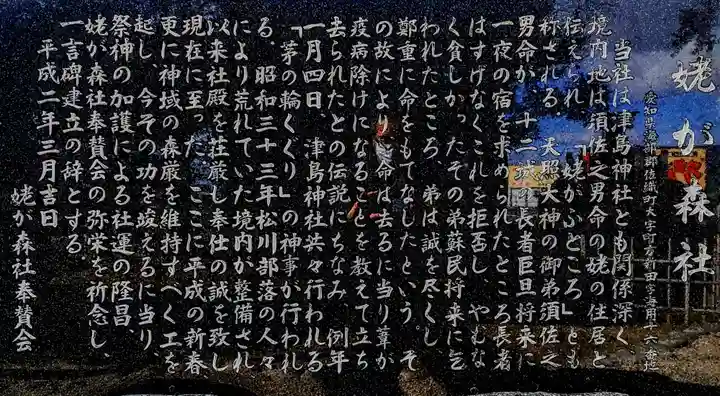 姥が森社
愛知県海部郡佐織町大字町方新田字
当社は津島神社とも関係深く、
境内地は須佐之男命の姥の住居と
伝えられ、「姥がふところ」とも
称される。天照大神の御弟須佐之
男命が、十二城の長者巨旦将来に
一夜の宿を求められたところ長者
はすげなくこれを拒否し、やむな
く貧しかったその弟蘇民将来に乞
われたところ、弟は誠を尽くし、
鄭重に命をもてなしたという。そ
の故により、命は去るに当り葦が
疫病除けになることを教えて立ち
去られたとの伝説にちなみ、例年
一月四日、津島神社共々行われる
「茅の輪くぐり」の神事が行われ
る。昭和三十三年松川部落の人々
により荒れていた境内が整備され
以来社殿を荘厳し奉仕の誠を致し
現在に至った。ここに平成の新春
更に神域の森厳を維持すべく工を
起し、今その功を竣えるに当り、
祭神の加護による社運の隆昌、
姥が森社奉賛会の弥栄を祈念し、
一言碑建立の辞とする。
平成二年三月吉日
姥が森社奉賛会